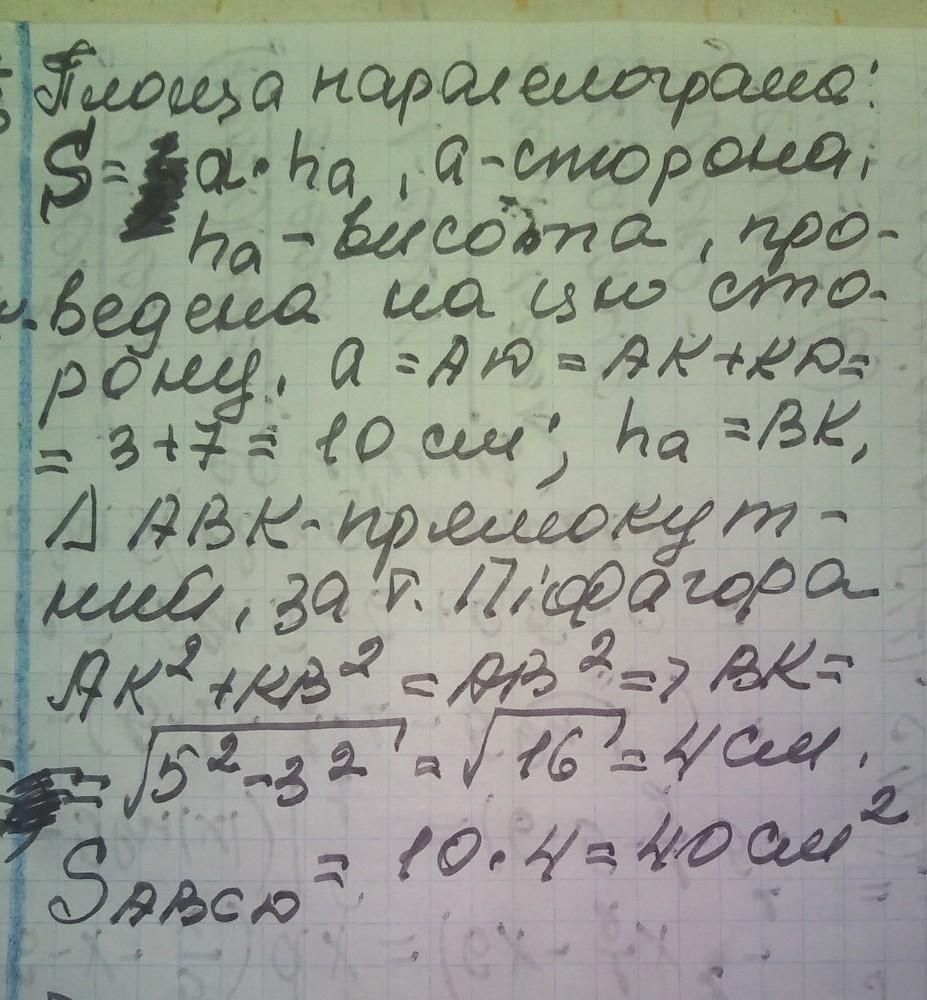 Площа паралелограма:
S = a·hₐ, a-сторона,
hₐ - висота, про-
ведена на цю сто-
рону. a = AD = AK + KD =
= 3 + 7 = 10 см; hₐ = BK,
Δ ABK - прямокут-
ний, за т. Піфагора
AK² + KB² = AB² => BK =
= √(5² - 3²) = √16 = 4 см.
S ABCD = 10 · 4 = 40 см²